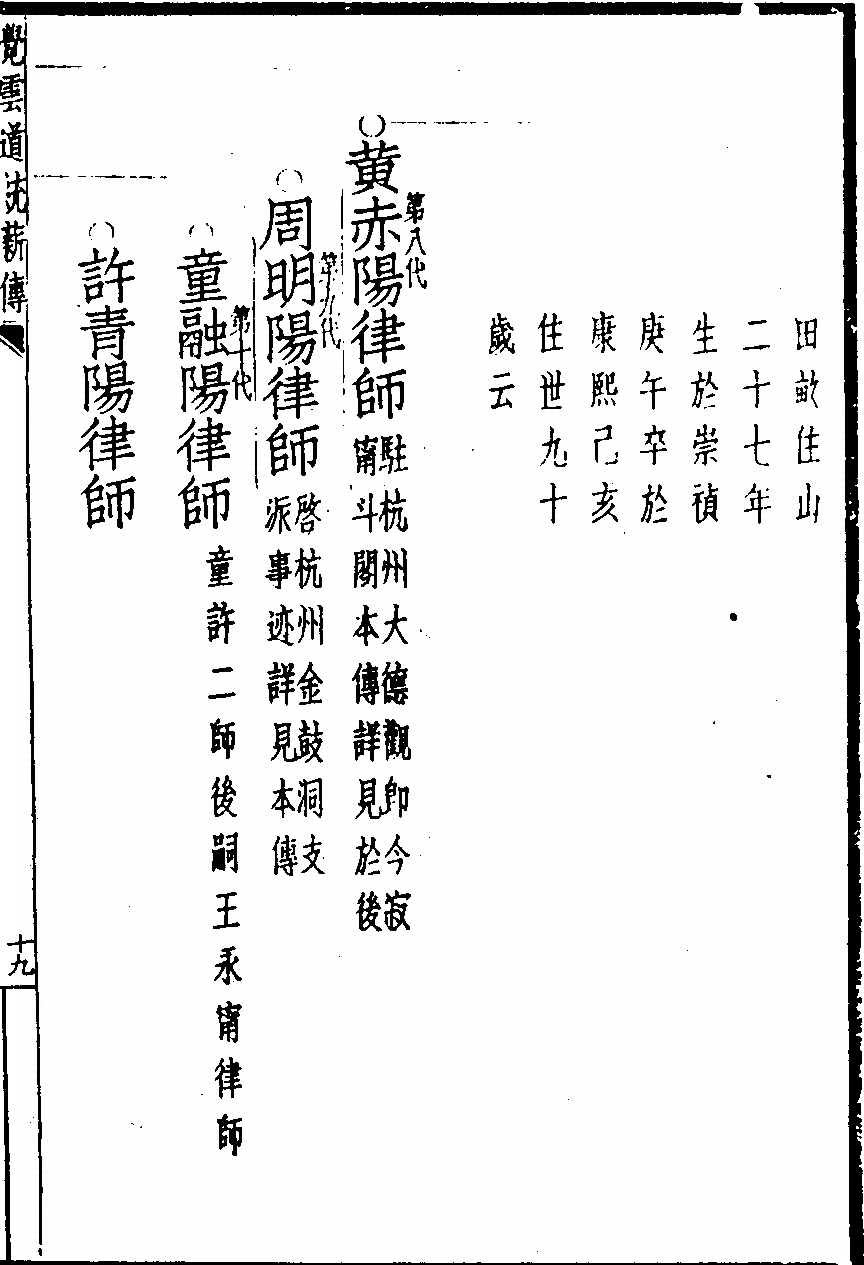 田畝住山
二十七年
生於崇禎
庚午卒於
康熙己亥
住世九十
歲云
第八代
黄赤陽律師
駐杭州大德觀即今寂
甯斗閣本傳詳見於後
第九代
周明陽律師
啓杭州金鼓洞支
派事迹詳見本傳
第十代
童融陽律師
童許二師後嗣王永甯律師
許青陽律師
覺雲道法薪傳
十九